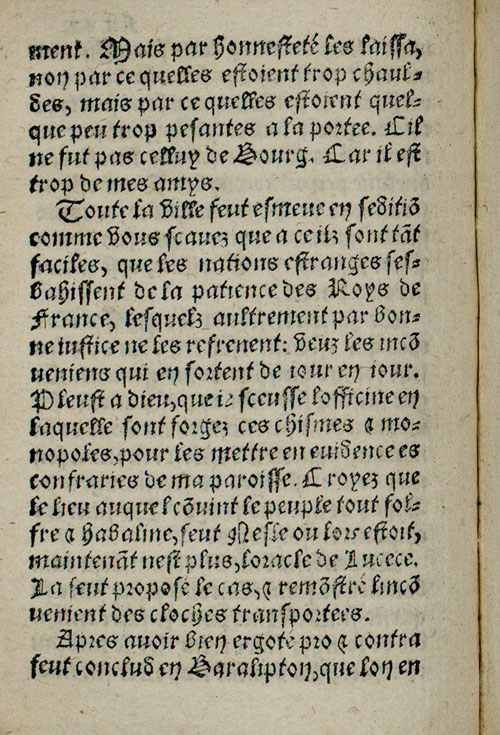 ment. Mais par honnesteté les laissa,
non par ce quelles estoient trop chaul-
des, mais par ce quelles estoient quel-
que peu trop pesantes a la portee. Cil
ne fut pas celluy de Bourg. Car il est
trop de mes amys.
Toute la ville feut esmeue en seditiõ
comme vous scauez que a ce ilz sont tãt
faciles, que les nations estranges ses-
bahissent de la patience des Roys de
France, lesquelz aultrement par bon-
ne iustice ne les refrenent: veuz les incõ
ueniens qui en sortent de iour en iour.
Pleust a dieu, que ie sceusse lofficine en
laquelle sont forgez ces chismes & mo-
nopoles, pour les mettre en euidence es
confraries de ma paroisse. Croyez que
le lieu auquel cõuint le peuple tout fol-
fre & habaline, feut Nesle ou lors estoit,
maintenãt nest plus, loracle de Lucece.
La feut propose le cas, & remõstré lincõ
uenient des cloches transportees.
Apres auoir bien ergoté pro & contra
feut conclud en Baralipton, que lon en